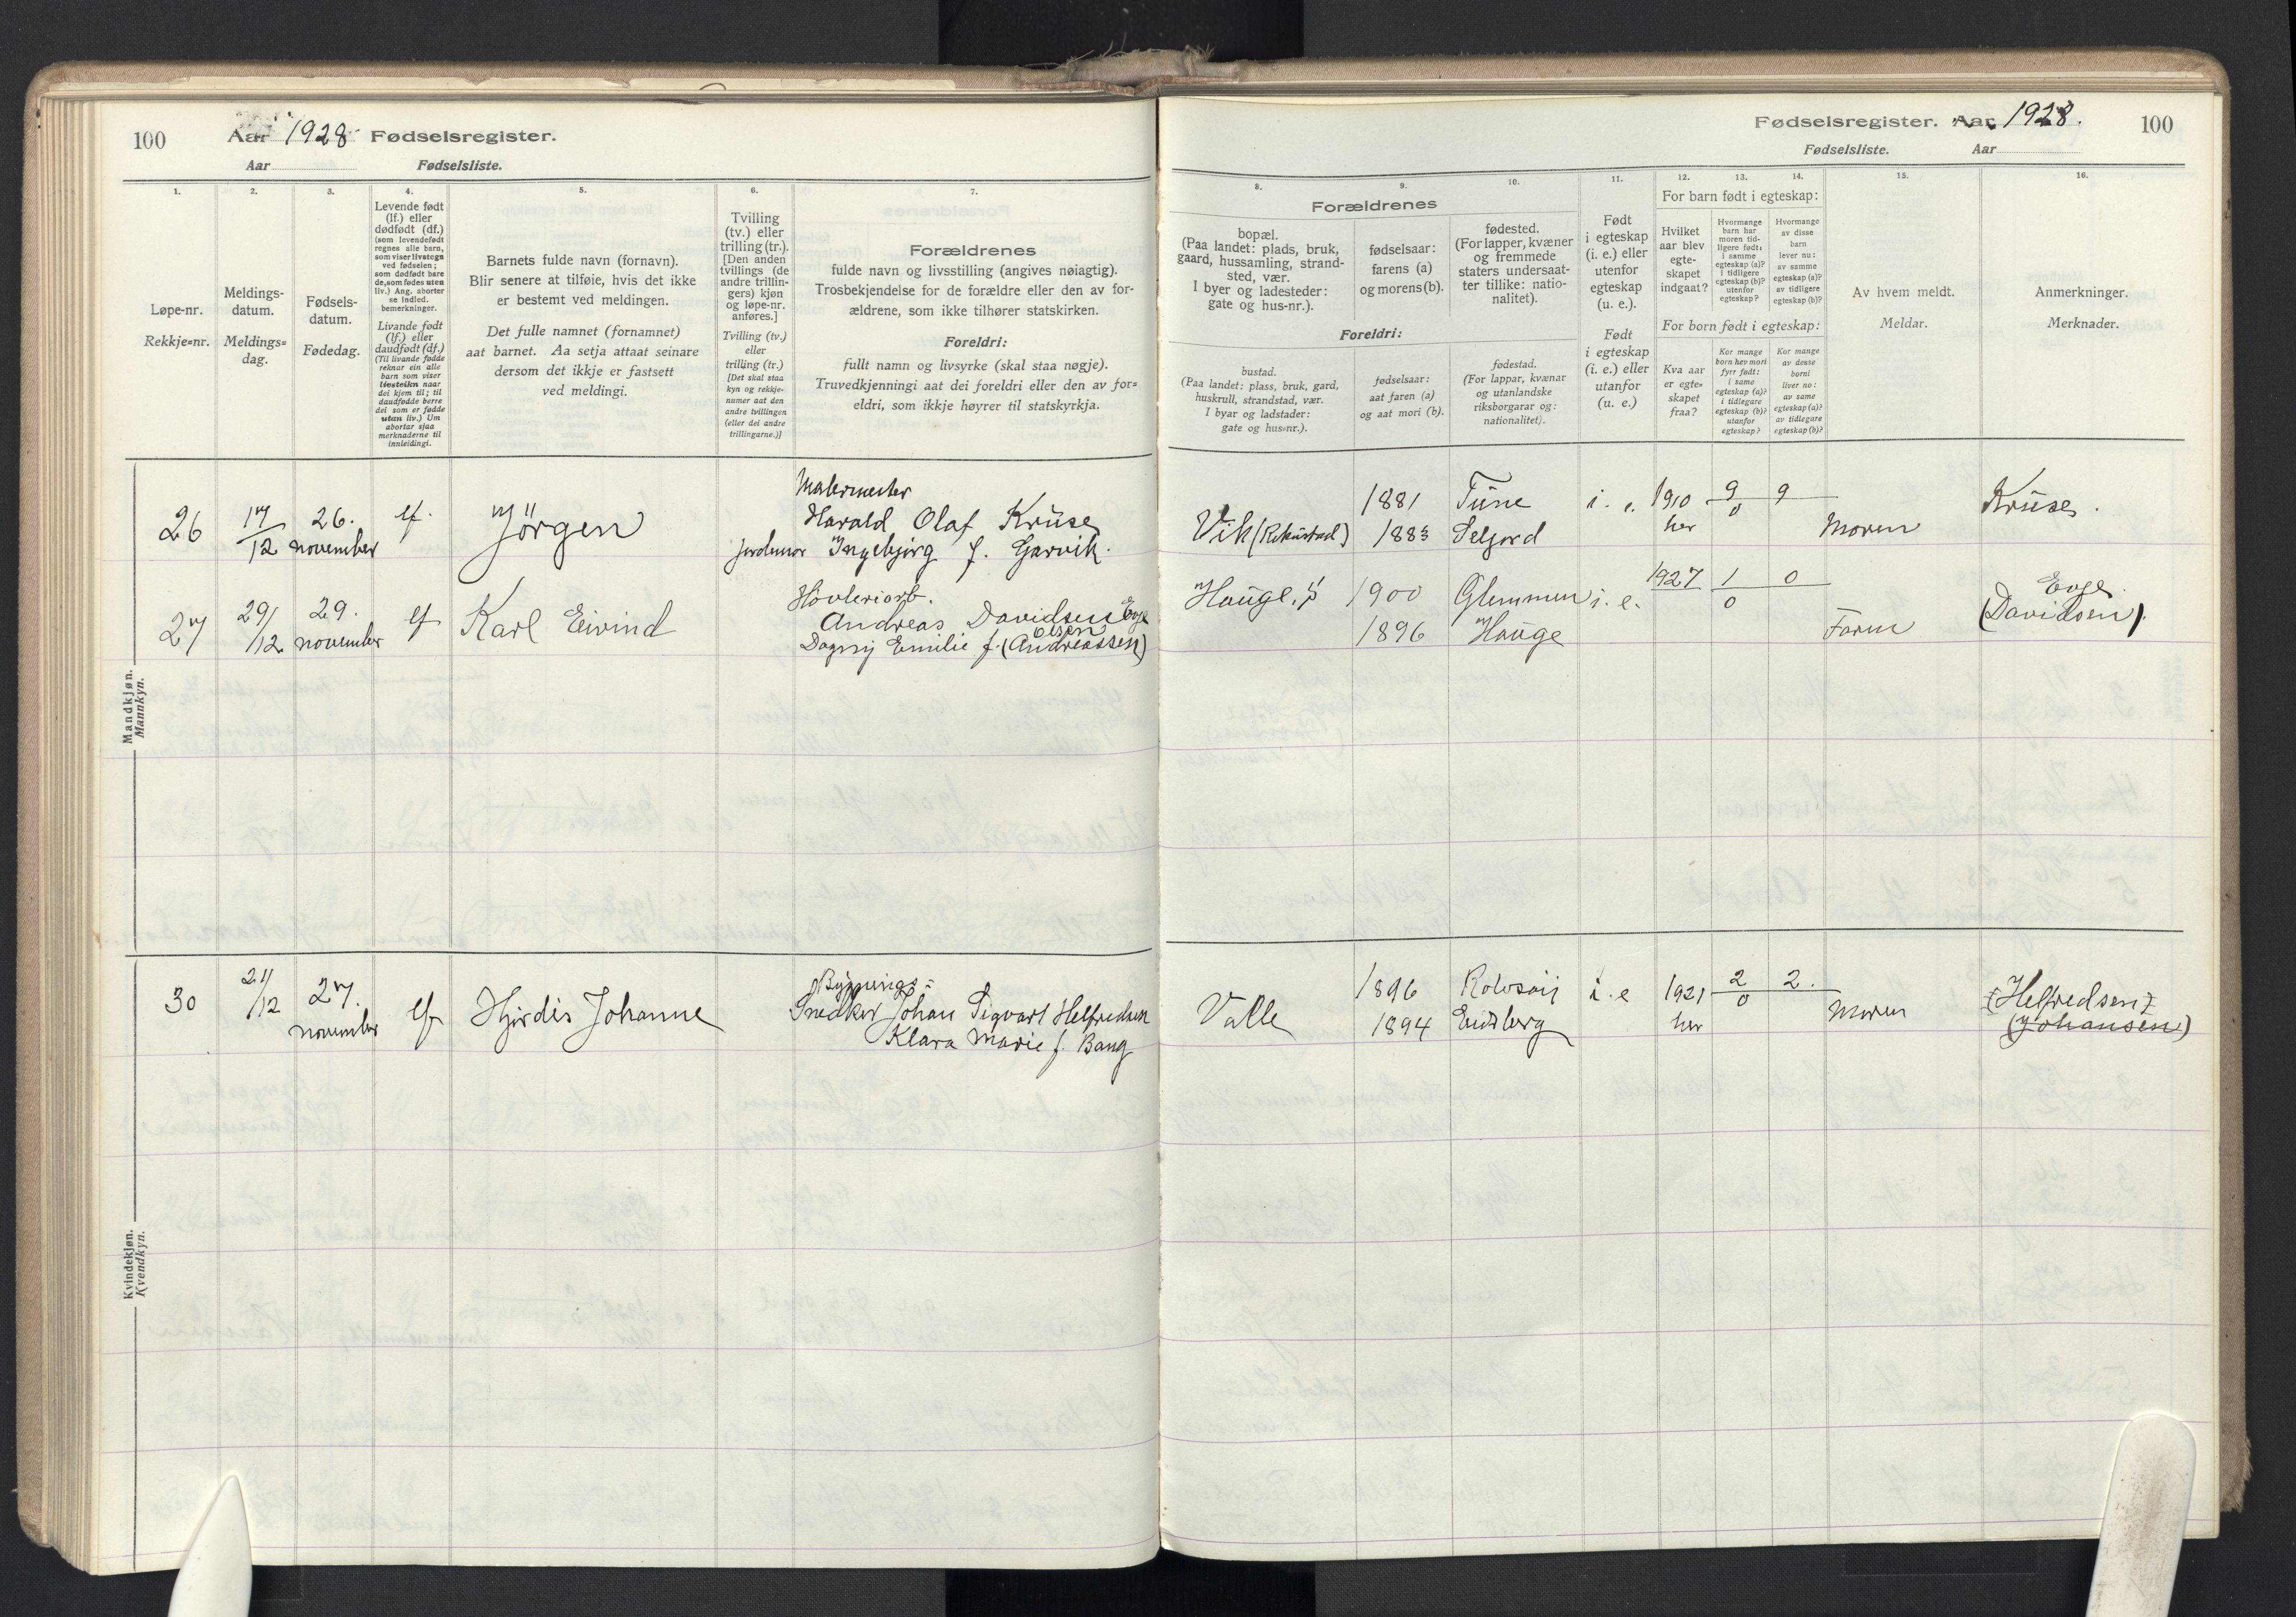 100 Aar 1928 Fødselsregister.
Aar Fødselsliste.
1. 2. 3. 4. 5. 6. 7.
Løpe-nr.
Rekkje-nr.
Meldings-
datum.
Meldings-
dag.
Fødsels-
datum.
Fødedag.
Levende født
(lf.) eller
dødfødt (df.)
(som levendefødt
regnes alle barn,
som viser livstegn
ved fødselen;
som dødfødt bare
de, som fødes uten
liv.) Ang. aborter
se indled.
bemerkninger.
Livande født
(lf.) eller
daudfødt (df.)
(Til livande fødde
reknar ein alle
barn som viser
livsteikn naar
dei kjem til; til
daudfødde berre
dei som er fødde
utan liv.) Um
abortar sjaa
merknaderne til
innleidingi.
Barnets fulde navn (fornavn).
Blir senere at tilføie, hvis det ikke
er bestemt ved meldingen.
Det fulle namnet (fornamnet)
aat barnet. Aa setja attaat seinare
dersom det ikkje er fastsett
ved meldingi.
Tvilling
(tv.) eller
trilling (tr.).
[Den anden
tvillings (de
andre trillin-
gers) kjøn
og løpe-nr.
anføres.]
Tvilling (tv.)
eller
trilling (tr.)
[Det skal staa
kyn og rekkje-
numer aat den
andre tvillingen
(eller dei andre
trillingarne.)]
Forældrenes
fulde navn og livsstilling (angives nøiagtig).
Trosbekjendelse for de forældre eller den av for-
ældrene, som ikke tilhører statskirken.
Foreldri:
fullt namn og livsyrke (skal staa nøgje).
Truvedkjenningi aat dei foreldri eller den av for-
eldri, som ikkje høyrer til statskyrkja.
Mandkjøn.
Mannkyn.
26 17/12 26. november lf. Jörgen
Malermester
Harald Olaf Krüse
jordmor Ingebjørg f. Garvik.
27 29/12 29. november lf Karl Eivind
Hövleriarb.
Andreas Davidsen Evje
Olsen
Dagny Emilie f. (Andreassen)
Kvindekjøn.
Kvendkyn.
30 21/12 27. november lf Hjördis Johanne
Bygnings-
Snedker Johan Sigvart Helfredsen
Klara Marie f. Bang
Fødselsregister. Aar 1928. 100
Fødselsliste. Aar
8. 9. 10. 11. 12. 13. 14. 15. 16.
Forældrenes
bopæl.
(Paa landet: plads, bruk,
gaard, hussamling, strand-
sted, vær.
I byer og ladesteder:
gate og hus-nr.).
fødselsaar:
farens (a)
og morens (b).
fødested.
(For lapper, kvæner
og fremmede
staters undersaat-
ter tillike: natio-
nalitet).
Foreldri:
bustad.
(Paa landet: plass, bruk, gard,
huskrull, strandstad, vær.
I byar og ladstader:
gate og hus-nr.).
fødselsaar:
aat faren (a)
og aat mori (b).
fødestad.
(For lappar, kvænar
og utanlandske
riksborgarar og:
nationalitet).
Født
i egteskap
(i. e.) eller
utenfor
egteskap
(u. e.).
Født
i egteskap
(i. e.) eller
utanfor
(u. e.)
For barn født i egteskap:
Hvilket
aar blev
egte-
skapet
indgaat?
Hvormange
barn har
moren tid-
ligere født:
i samme
egteskap (a)?
i tidligere
egteskap (b)?
utenfor
egteskap?
Hvormange
av disse
barn
lever nu:
av samme
egteskap (a)?
av tidligere
egteskap (b)?
For born født i egteskap:
Kva aar
er egte-
skapet
fraa?
Kor mange
born hev mori
fyrr født:
i same
egteskap (a)?
i tidlegare
egteskap (b)?
utanfor
egteskap?
Kor mange
av desse
borni
liver no:
av same
egteskap (a)?
av tidlegare
egteskap (b)?
Av hvem meldt.
Meldar.
Anmerkninger.
Merknader.
1881 Tüne i. e. 1910 9/0 9 Krüse.
Vik 1883 Seljord her Moren
Hauge, 1900 Glemmen i. e. 1927 1/0 0 Evje
1896 Hauge Faren (Davidsen).
1896 Rolvsøy i. e 1921 2/0 2. (Helfredsen)
Valle 1894 Eidsberg her Moren (Johansen)